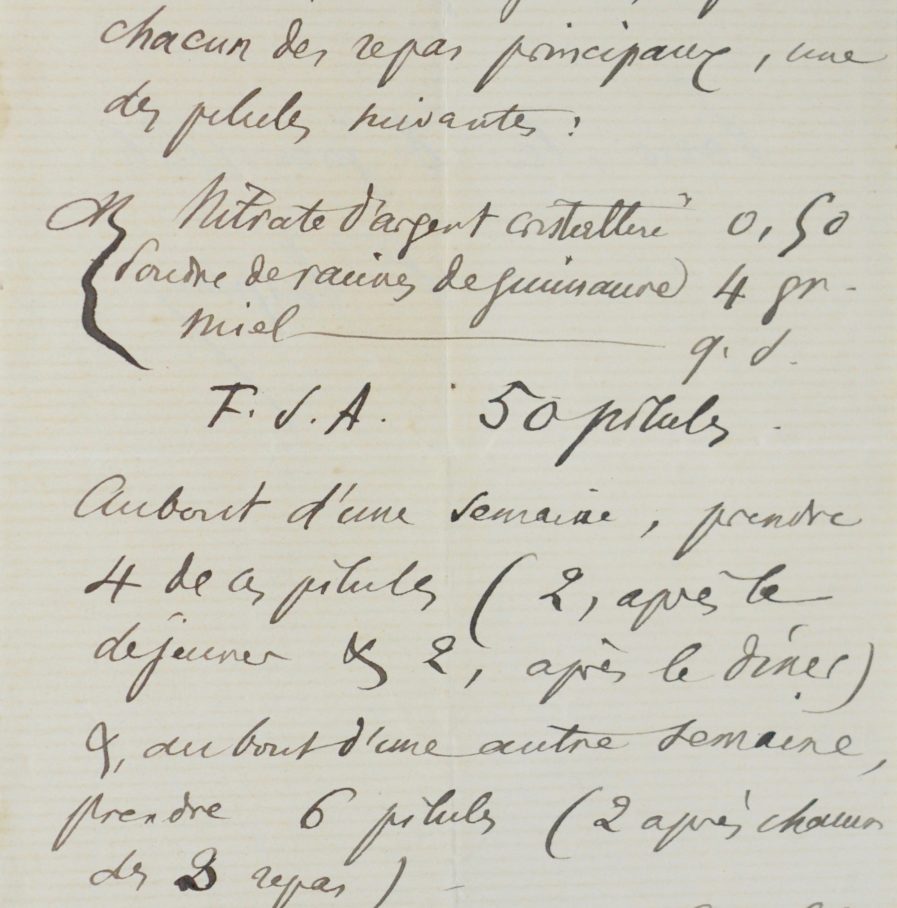 chacun des repas principaux, une
des pilules suivantes :
Nitrate d'argent cristallisé 0,50
Poudre de racines de guimauve 4 gr.
Miel q. s.
F. S. A. 50 pilules.
Au bout d'une semaine, prendre
4 de ces pilules (2, après le
déjeuner & 2, après le dîner)
&, au bout d'une autre semaine,
prendre 6 pilules (2 après chacun
des 3 repas)